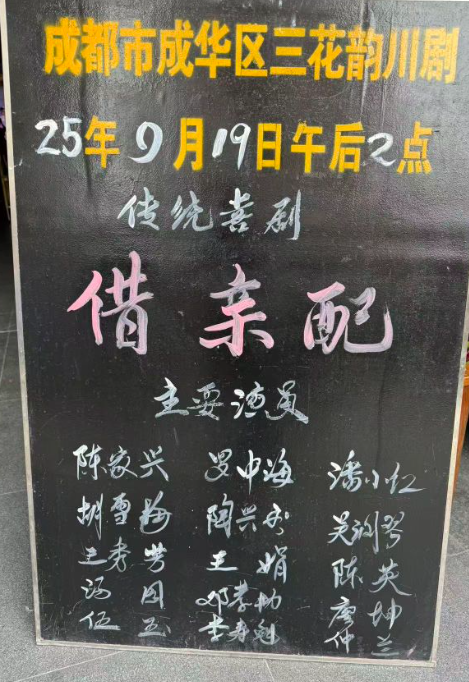 成都市成华区三花韵川剧
25年9月19日午后2点
传统喜剧
借亲配
主要演员
陈家兴 罗中海 潘小红
胡雪梅 陶兴
王秀芳 王娟 陈英
冯国 邓孝 廖坤
伍玉 李寿魁 仲兰